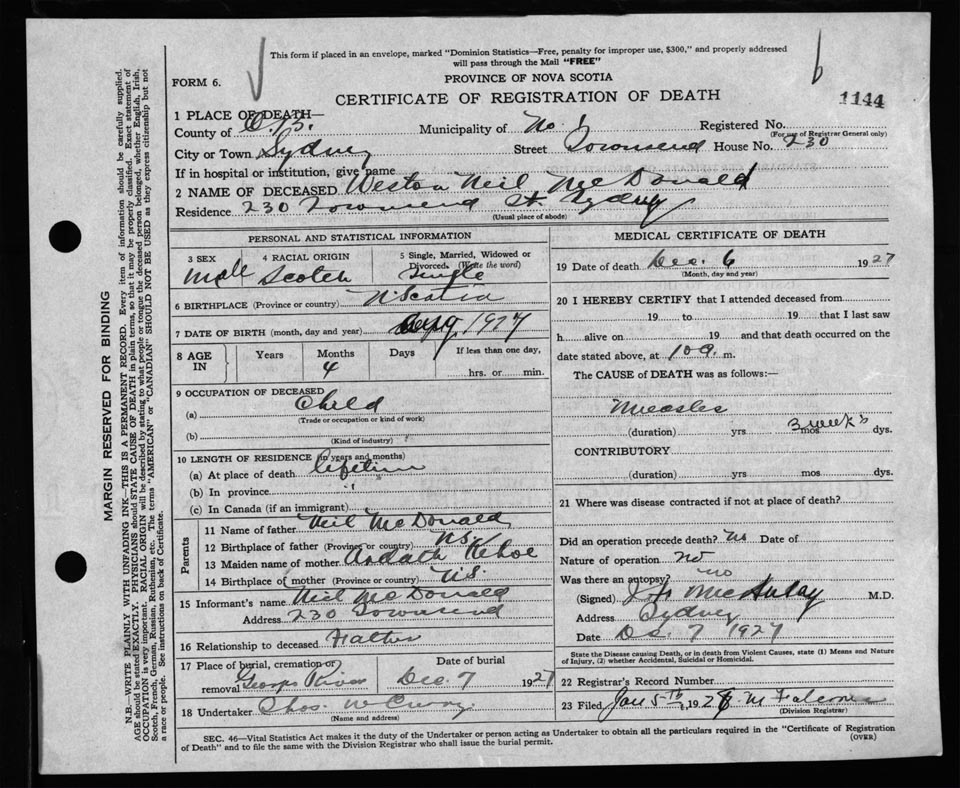 This form if placed in an envelope, marked "Dominion Statistics—Free, penalty for improper use, $300," and properly addressed
will pass through the Mail "FREE"
FORM 6.
PROVINCE OF NOVA SCOTIA
CERTIFICATE OF REGISTRATION OF DEATH
1144
1 PLACE OF DEATH—
County of C.B. Municipality of No 1 Registered No.
(For use of Registrar General only)
City or Town Sydney Street Townsend House No. 230
If in hospital or institution, give name
2 NAME OF DECEASED Weston Neil McDonald
Residence 230 Townsend St Sydney
(Usual place of abode)
PERSONAL AND STATISTICAL INFORMATION
3 SEX 4 RACIAL ORIGIN 5 Single, Married, Widowed or Divorced. (Write the word)
Male Scotch Single
6 BIRTHPLACE (Province or country) N Scotia
7 DATE OF BIRTH (month, day and year) Aug 1927
8 AGE IN Years Months Days If less than one day,
4 hrs. or min.
9 OCCUPATION OF DECEASED
(a) Child
(Trade or occupation or kind of work)
(b)
(Kind of industry)
10 LENGTH OF RESIDENCE (in years and months)
(a) At place of death lifetime
(b) In province "
(c) In Canada (if an immigrant)
Parents
11 Name of father Neil McDonald
12 Birthplace of father (Province or country) N.S.
13 Maiden name of mother Ardath Kehoe
14 Birthplace of mother (Province or country) N.S.
15 Informant's name Neil McDonald
Address 230 Townsend
16 Relationship to deceased Father
17 Place of burial, cremation or removal Georges River
Date of burial Dec. 7 1927
18 Undertaker Thos. W Curry.
(Name and address)
MEDICAL CERTIFICATE OF DEATH
19 Date of death Dec. 6 1927
(Month, day and year)
20 I HEREBY CERTIFY that I attended deceased from
19 to 19 that I last saw
h alive on 19 and that death occurred on the
date stated above, at 10 a. m.
The CAUSE of DEATH was as follows:—
Measles
(duration) yrs mos 3 weeks dys.
CONTRIBUTORY
(duration) yrs mos dys.
21 Where was disease contracted if not at place of death?
Did an operation precede death? No Date of
Nature of operation No
Was there an autopsy? no
(Signed) McAulay M.D.
Address Sydney
Date Dec. 7 1927
State the Disease causing Death, or in death from Violent Causes, state (1) Means and Nature
of Injury, (2) whether Accidental, Suicidal or Homicidal.
22 Registrar's Record Number
23 Filed Jan 5th 1928 M
(Division Registrar)
SEC. 46—Vital Statistics Act makes it the duty of the Undertaker or person acting as Undertaker to obtain all the particulars required in the "Certificate of Registration
of Death" and to file the same with the Division Registrar who shall issue the burial permit.
(OVER)
MARGIN RESERVED FOR BINDING
N.B.—WRITE PLAINLY WITH UNFADING INK—THIS IS A PERMANENT RECORD. Every item of information should be carefully supplied.
AGE should be stated EXACTLY. PHYSICIANS should STATE CAUSE OF DEATH in plain terms, so that it may be properly classified. Exact statement of
OCCUPATION is very important. RACIAL ORIGIN will be described by stating to what people or tongue the deceased person belonged, whether English, Irish,
Scotch, French, German, Russian, Ruthenian, etc. The terms "AMERICAN" or "CANADIAN" SHOULD NOT BE USED as they express citizenship but not
a race or people. See instructions on back of Certificate.